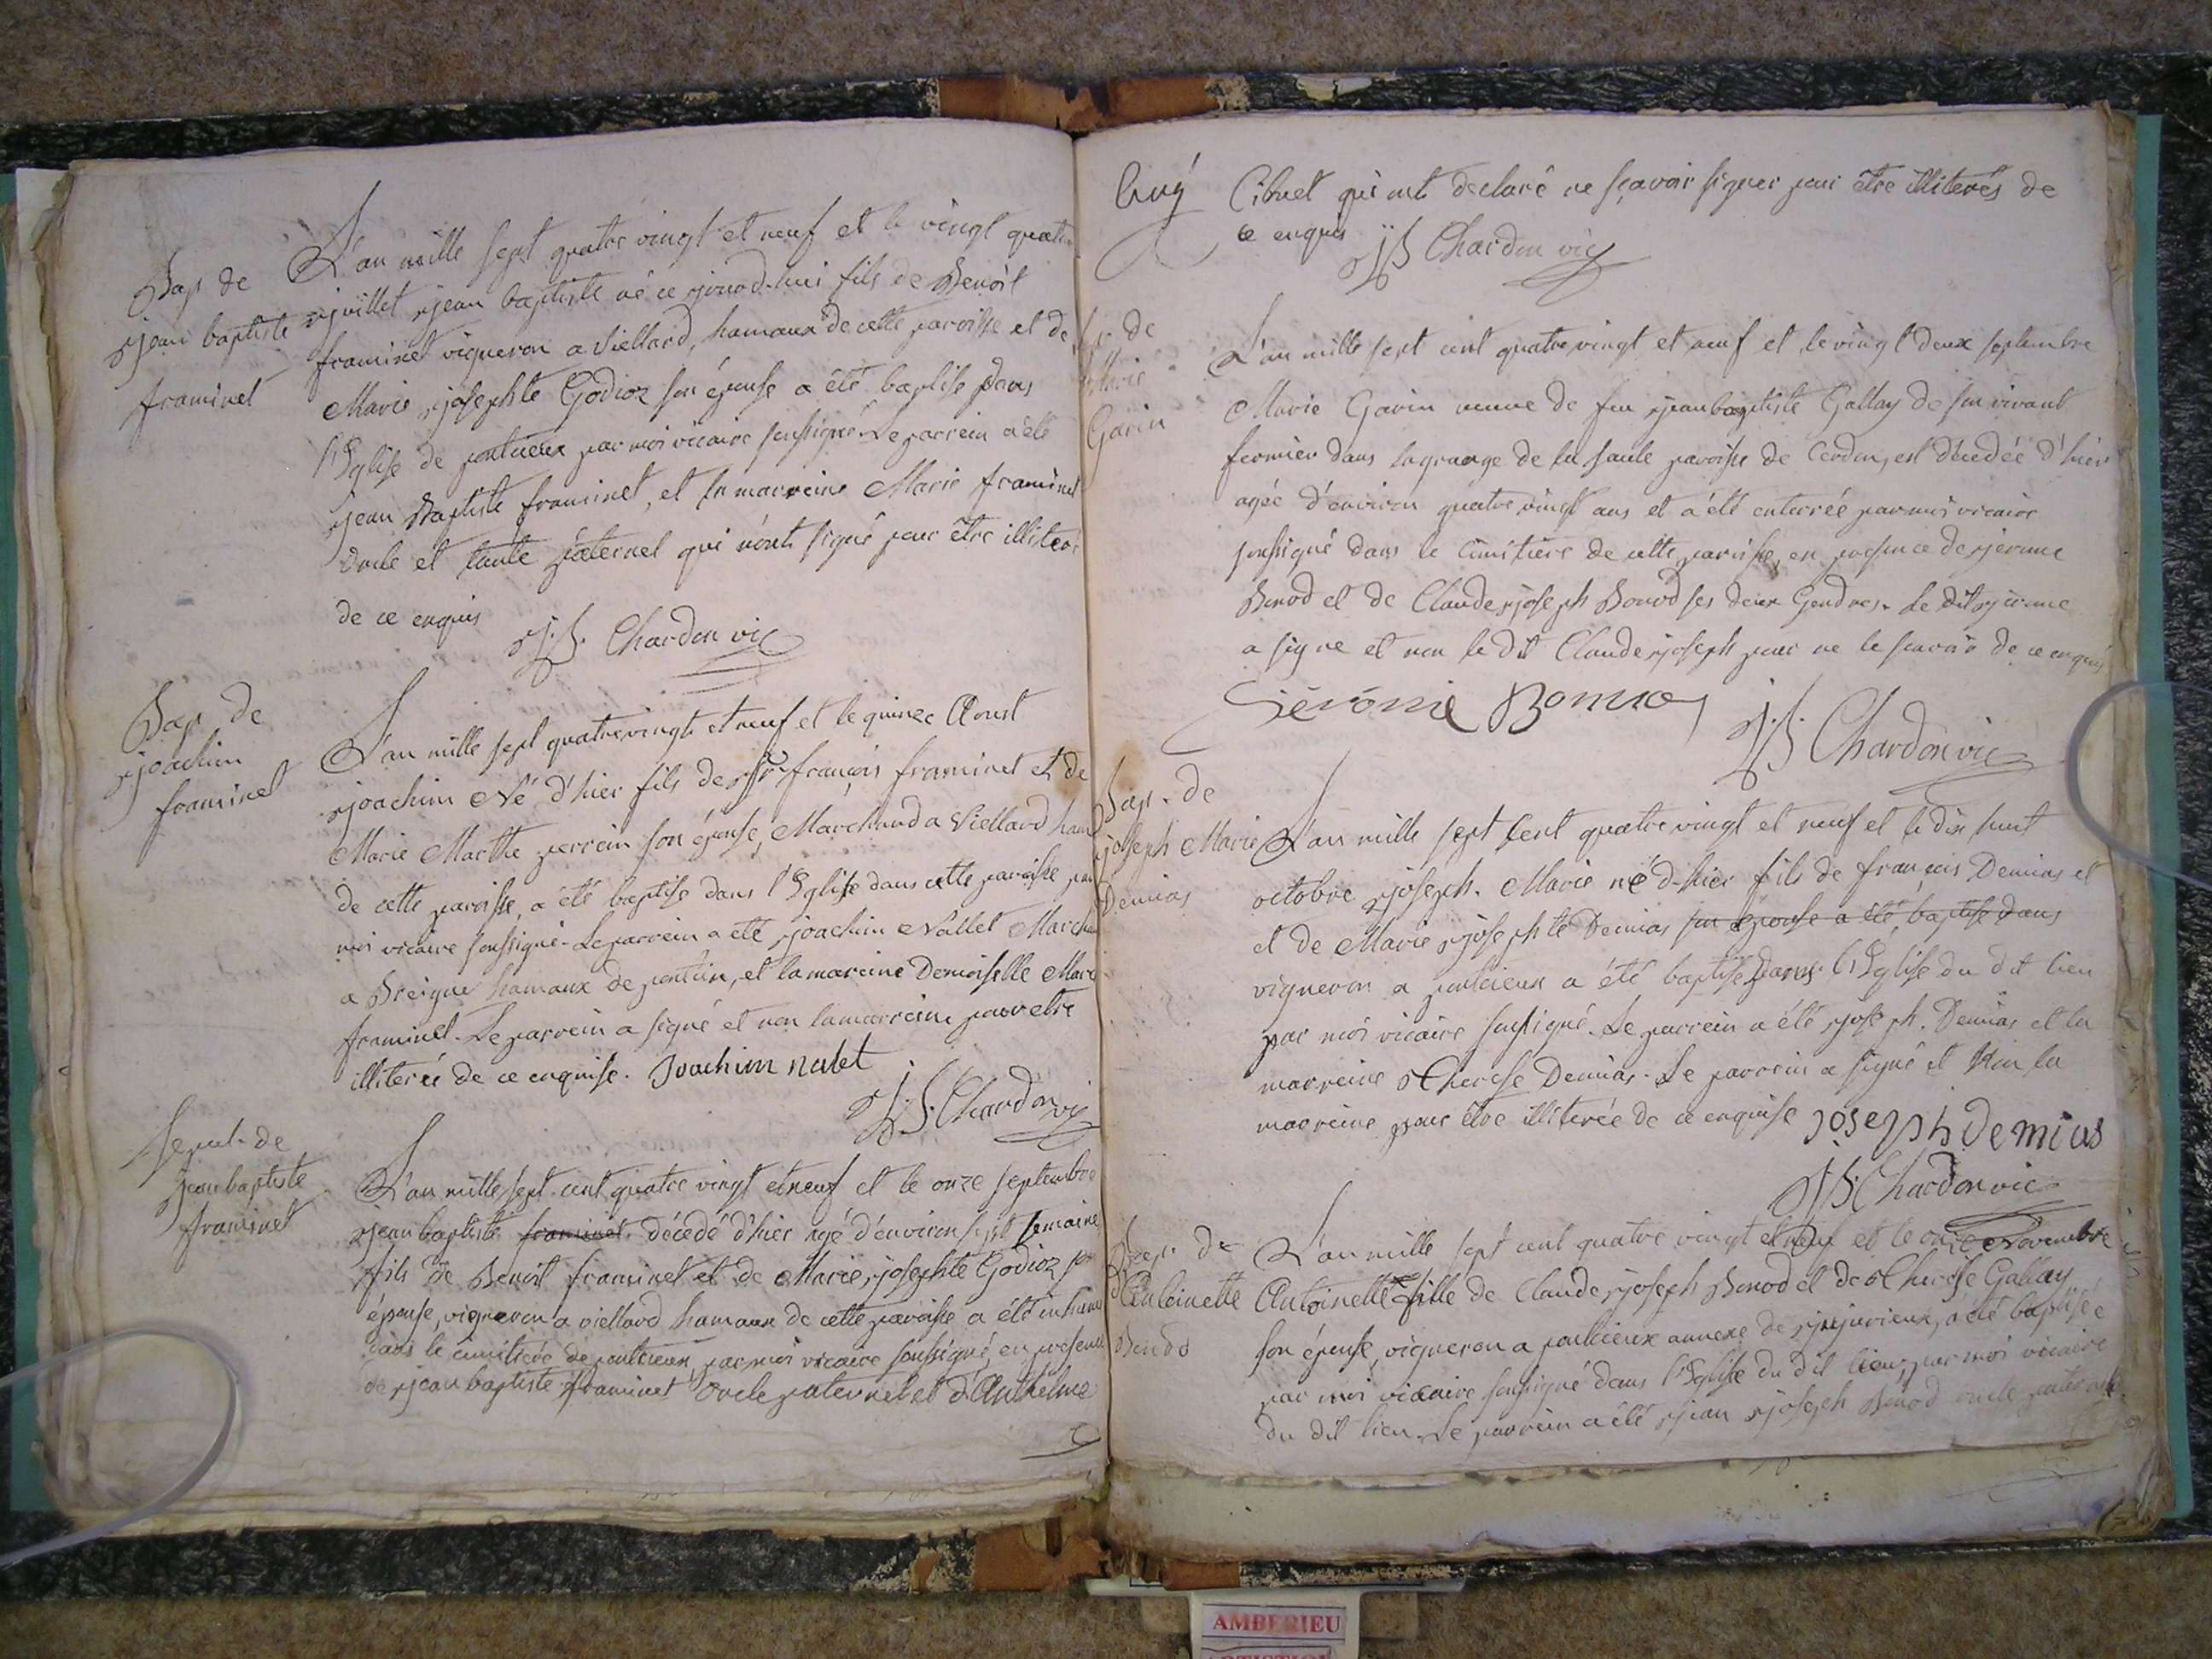 Bap de
jean baptiste
framinet
L'an mille sept quatre vingt et neuf et le vingt quatre
juillet jean baptiste né ce jourd-hui fils de Benoit
framinet vigneron a Viellard, hamaux de cette paroisse et de
Marie josephte Godioz son épouse a été baptisé dans
l'Eglise de pontcieux par moi vicaire soussigné. Le parrein a été
jean Baptiste framinet, et la marreine Marie framinet
oncle et tante paternel qui n'ont signé pour être illiterés
de ce enquis
J.B. Chardon vic
Bap. de
joachim
framinet
L'an mille sept quatrevingt et neuf et le quinze Aoust
joachim Né d'hier fils de Sr françois framinet et de
Marie Marthe perrein son épouse, Marchand a Viellard ham
de cette paroisse, a été baptisé dans l'Eglise dans cette paroisse par
moi vicaire soussigné. Le parrein a été joachim Nallet March
a Breigne hamaux de poncin, et la marreine Demoiselle Marie
framinet. Le parrein a signé et non la marreine pour etre
illiterée de ce enquise. Joachim nalet
J.B. Chardon vic
Sepul. de
Jean baptiste
framinet
L'an mille sept cent quatre vingt et neuf et le onze septembre
jean baptiste framinet décédé d'hier agé d'environ sept semaine
fils de Benoit framinet et de Marie josephte Godioz son
épouse, vigneron a viellard hamaux de cette paroisse a été inhumé
dans le cimitiere de pontcieux, par moi vicaire soussigné, en presence
de jean baptiste framinet oncle paternel et d'Anthelme
Cibuet qui ont declaré ne sçavoir signer pour être illiterés de
ce enquis J.B. Chardon vic
de
Marie
Garin
L'an mille sept cent quatre vingt et neuf et le vingt deux septembre
Marie Garin veuve de feu jean baptiste Gallay de son vivant
fermier dans la grange de la saule paroisse de Cerdon, est décedée d'hier
agée d'environ quatre vingt ans et a été enterrée par moi vicaire
soussigné dans le cimitiere de cette paroisse, en presence de jerome
Bonod et de Claude joseph Bonod ses deux Gendres. Le dit jerome
a signe et non le dit Claude joseph pour ne le scavoir de ce enquis
J.B. Chardon vic
Bap. de
joseph Marie
Demias
L'an mille sept Cent quatre vingt et neuf et le dix huit
octobre joseph. Marie né d'hier fils de françois Demias et
et de Marie josephte Demias son épouse a été baptisé dans
vigneron a pontcieux a été baptisé dans l'Eglise du dit lieu
par moi vicaire soussigné. Le parrein a été joseph. Demias et la
marreine Therese Demias. Le parrein a signé et Non la
marreine pour être illiterée de ce enquise joseph demias
J.B. Chardon vic
Bap. de
Antoinette
Bonod
L'an mille sept cent quatre vingt et neuf et le onze Novembre
Antoinette fille de Claude joseph Bonod et de Therese Gallay
son épouse, vigneron a pontcieux annexe de jujurieux, a été baptisée
par moi vicaire soussigné dans l'Eglise du dit lieu, par moi vicaire
du dit lieu. Le parrein a été jean joseph Bonod oncle paternel
AMBERIEU